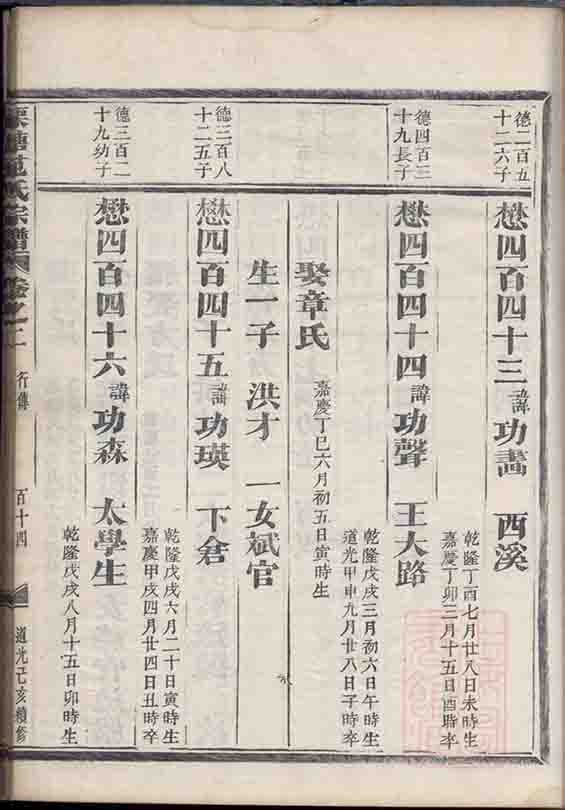 德二百五
十二六子
懋四百四十三諱功畵 西溪
乾隆丁酉七月廿八日未時生
嘉慶丁卯三月十五日酉時卒
德四百三
十九長子
懋四百四十四諱功聲 王大路
乾隆戊戌三月初六日午時生
道光甲申九月廿八日子時卒
娶章氏
嘉慶丁巳六月初五日寅時生
生一子 洪才 一女斌官
德三百八
十二五子
懋四百四十五諱功瑛 下倉
乾隆戊戌六月二十日寅時生
嘉慶甲戌四月廿四日丑時卒
德三百二
十九幼子
懋四百四十六諱功森 太學生
乾隆戊戌八月十五日卯時生
氏宗譜 卷之二 行傳 百十四 道光己亥續修